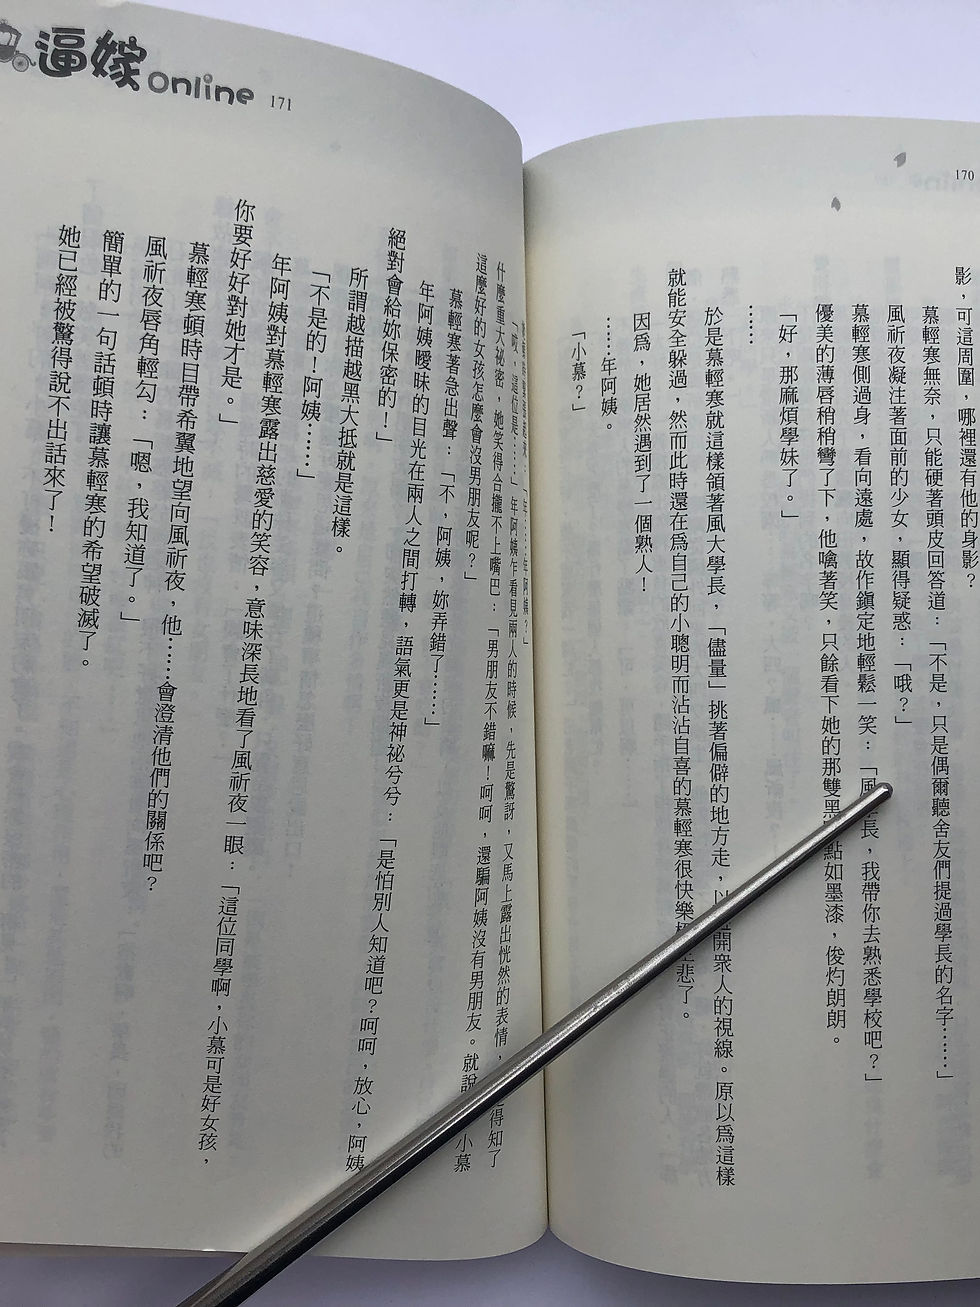 170
影，可這周圍，哪裡還有他的身影？
慕輕寒無奈，只能硬著頭皮回答道：「不是，只是偶爾聽舍友們提過學長的名字……」
風祈夜凝注著面前的少女，顯得疑惑：「哦？」
慕輕寒側過身，看向遠處，故作鎮定地輕鬆一笑：「風長，我帶你去熟悉學校吧？」
優美的薄唇稍稍彎了下，他噙著笑，只餘看下她的那雙黑點如墨漆，俊灼朗朗。
「好，那麻煩學妹了。」
……
於是慕輕寒就這樣領著風大學長，「儘量」挑著偏僻的地方走，以開眾人的視線。原以為這樣
就能安全躲過，然而此時還在為自己的小聰明而沾沾自喜的慕輕寒很快樂悲了。
因為，她居然遇到了一個熟人！
……年阿姨。
「小慕？」
逼嫁online 171
「哎，這位是……」年阿姨乍看見兩人的時候，先是驚訝，又馬上露出恍然的表情，得知了
什麼重大祕密，她笑得合攏不上嘴巴：「男朋友不錯嘛！呵呵，還騙阿姨沒有男朋友。就說小慕
這麼好的女孩怎麼會沒男朋友呢？」
慕輕寒著急出聲：「不，阿姨，妳弄錯了……」
年阿姨曖昧的目光在兩人之間打轉，語氣更是神祕兮兮：「是怕別人知道吧？呵呵，放心，阿姨
絕對會給妳保密的！」
所謂越描越黑大抵就是這樣。
「不是的！阿姨……」
年阿姨對慕輕寒露出慈愛的笑容，意味深長地看了風祈夜一眼：「這位同學啊，小慕可是好女孩，
你要好好對她才是。」
慕輕寒頓時目帶希翼地望向風祈夜，他……會澄清他們的關係吧？
風祈夜唇角輕勾：「嗯，我知道了。」
簡單的一句話頓時讓慕輕寒的希望破滅了。
她已經被驚得說不出話來了！